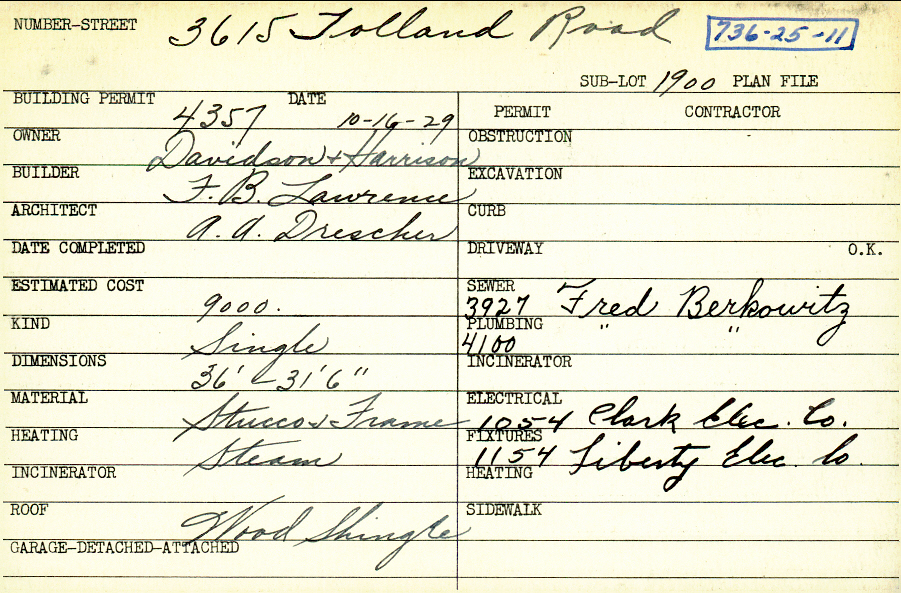 NUMBER-STREET 3615 Tolland Road 736-25-11
SUB-LOT 1900 PLAN FILE
BUILDING PERMIT 4357 DATE 10-16-29
OWNER Davidson + Harrison
BUILDER F. B. Lawrence
ARCHITECT A. A. Drescher
DATE COMPLETED
ESTIMATED COST 9000.
KIND Single
DIMENSIONS 36' - 31'6"
MATERIAL Stucco & Frame
HEATING Steam
INCINERATOR
ROOF Wood Shingle
GARAGE-DETACHED-ATTACHED
PERMIT CONTRACTOR
OBSTRUCTION
EXCAVATION
CURB
DRIVEWAY O.K.
SEWER 3927 Fred Berkowitz
PLUMBING 4100 " "
INCINERATOR
ELECTRICAL 1054 Clark Elec. Co.
FIXTURES 1154 Liberty Elec. Co.
HEATING
SIDEWALK